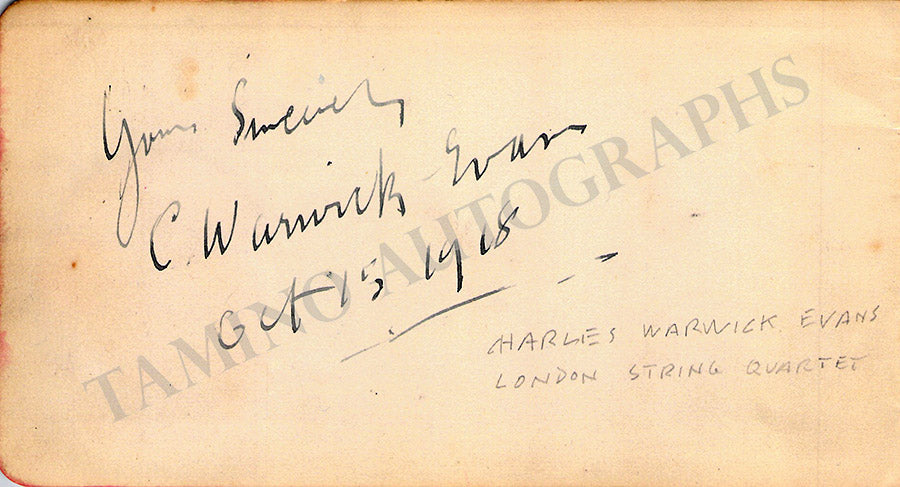 Yours Sincerely
C. Warwick-Evans
Oct 15 1918
CHARLES WARWICK EVANS
LONDON STRING QUARTET
TAMINO AUTOGRAPHS